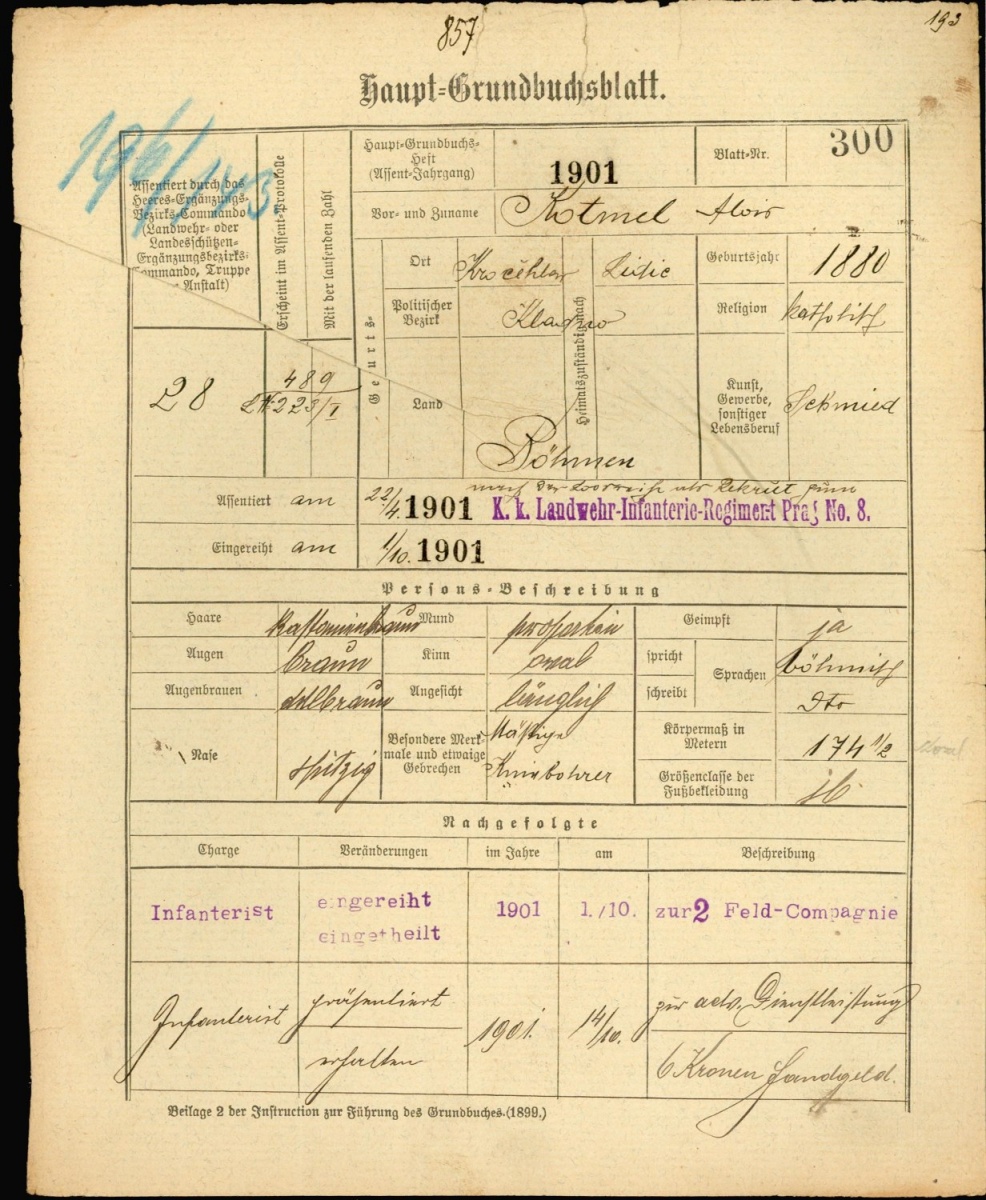 857
193
Haupt-Grundbuchsblatt.
Assentiert durch das
Heeres-Ergänzungs-
Bezirks-Commando
(Landwehr- oder
Landesschützen-
Ergänzungsbezirks-
Commando, Truppe
Anstalt)
Erscheint im Assent-Protokolle
Mit der laufenden Zahl
28
489
223/I
Haupt-Grundbuchs-
Heft
(Assent-Jahrgang)
1901
Blatt-Nr.
300
Vor- und Zuname
Kotmel Alois
Geburts-
Ort
Kročehlaw
Politischer
Bezirk
Kladno
Land
Böhmen
Heimatszuständig nach
Geburtsjahr
1880
Religion
katholisch
Kunst,
Gewerbe,
sonstiger
Lebensberuf
Schmied
Assentiert am
22/4. 1901
als Rekrut zum
K. k. Landwehr-Infanterie-Regiment Prag No. 8.
Eingereiht am
1/10. 1901
Persons-Beschreibung
Haare
kastanienbraun
Mund
proportion
Geimpft
ja
Augen
braun
Kinn
oval
spricht
Sprachen
böhmisch
Augenbrauen
dklbraun
Angesicht
länglich
schreibt
dto
Nase
spitzig
Besondere Merk-
male und etwaige
Gebrechen
Mäßige
Kniebohrer
Körpermaß in
Metern
174 1/2
Größenclasse der
Fußbekleidung
Nachgefolgte
Charge
Veränderungen
im Jahre
am
Beschreibung
Infanterist
eingereiht
eingetheilt
1901
1./10.
zur 2 Feld-Compagnie
Infanterist
präsentiert
erhalten
1901.
14/10.
zur activ. Dienstleistung
6 Kronen Handgeld.
Beilage 2 der Instruction zur Führung des Grundbuches.(1899.)